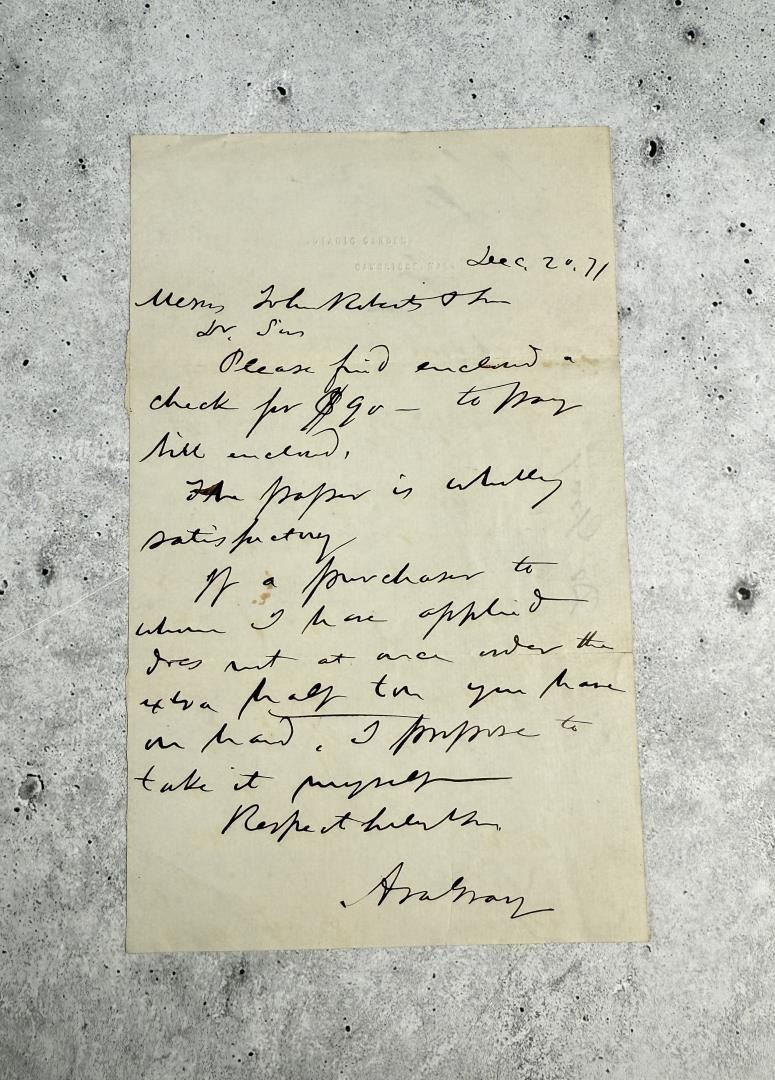 BOTANIC GARDEN,
CAMBRIDGE, MASS.
Dec. 20, 71
Messrs John Roberts & Son
Dr. Sirs
Please find enclosed a
check for $90 — to pay
bill enclosed.
The paper is wholly
satisfactory
If a purchaser to
whom I have applied
does not at once order the
extra half ton you have
on hand, I propose to
take it myself—
Respectfully Yrs.
Asa Gray